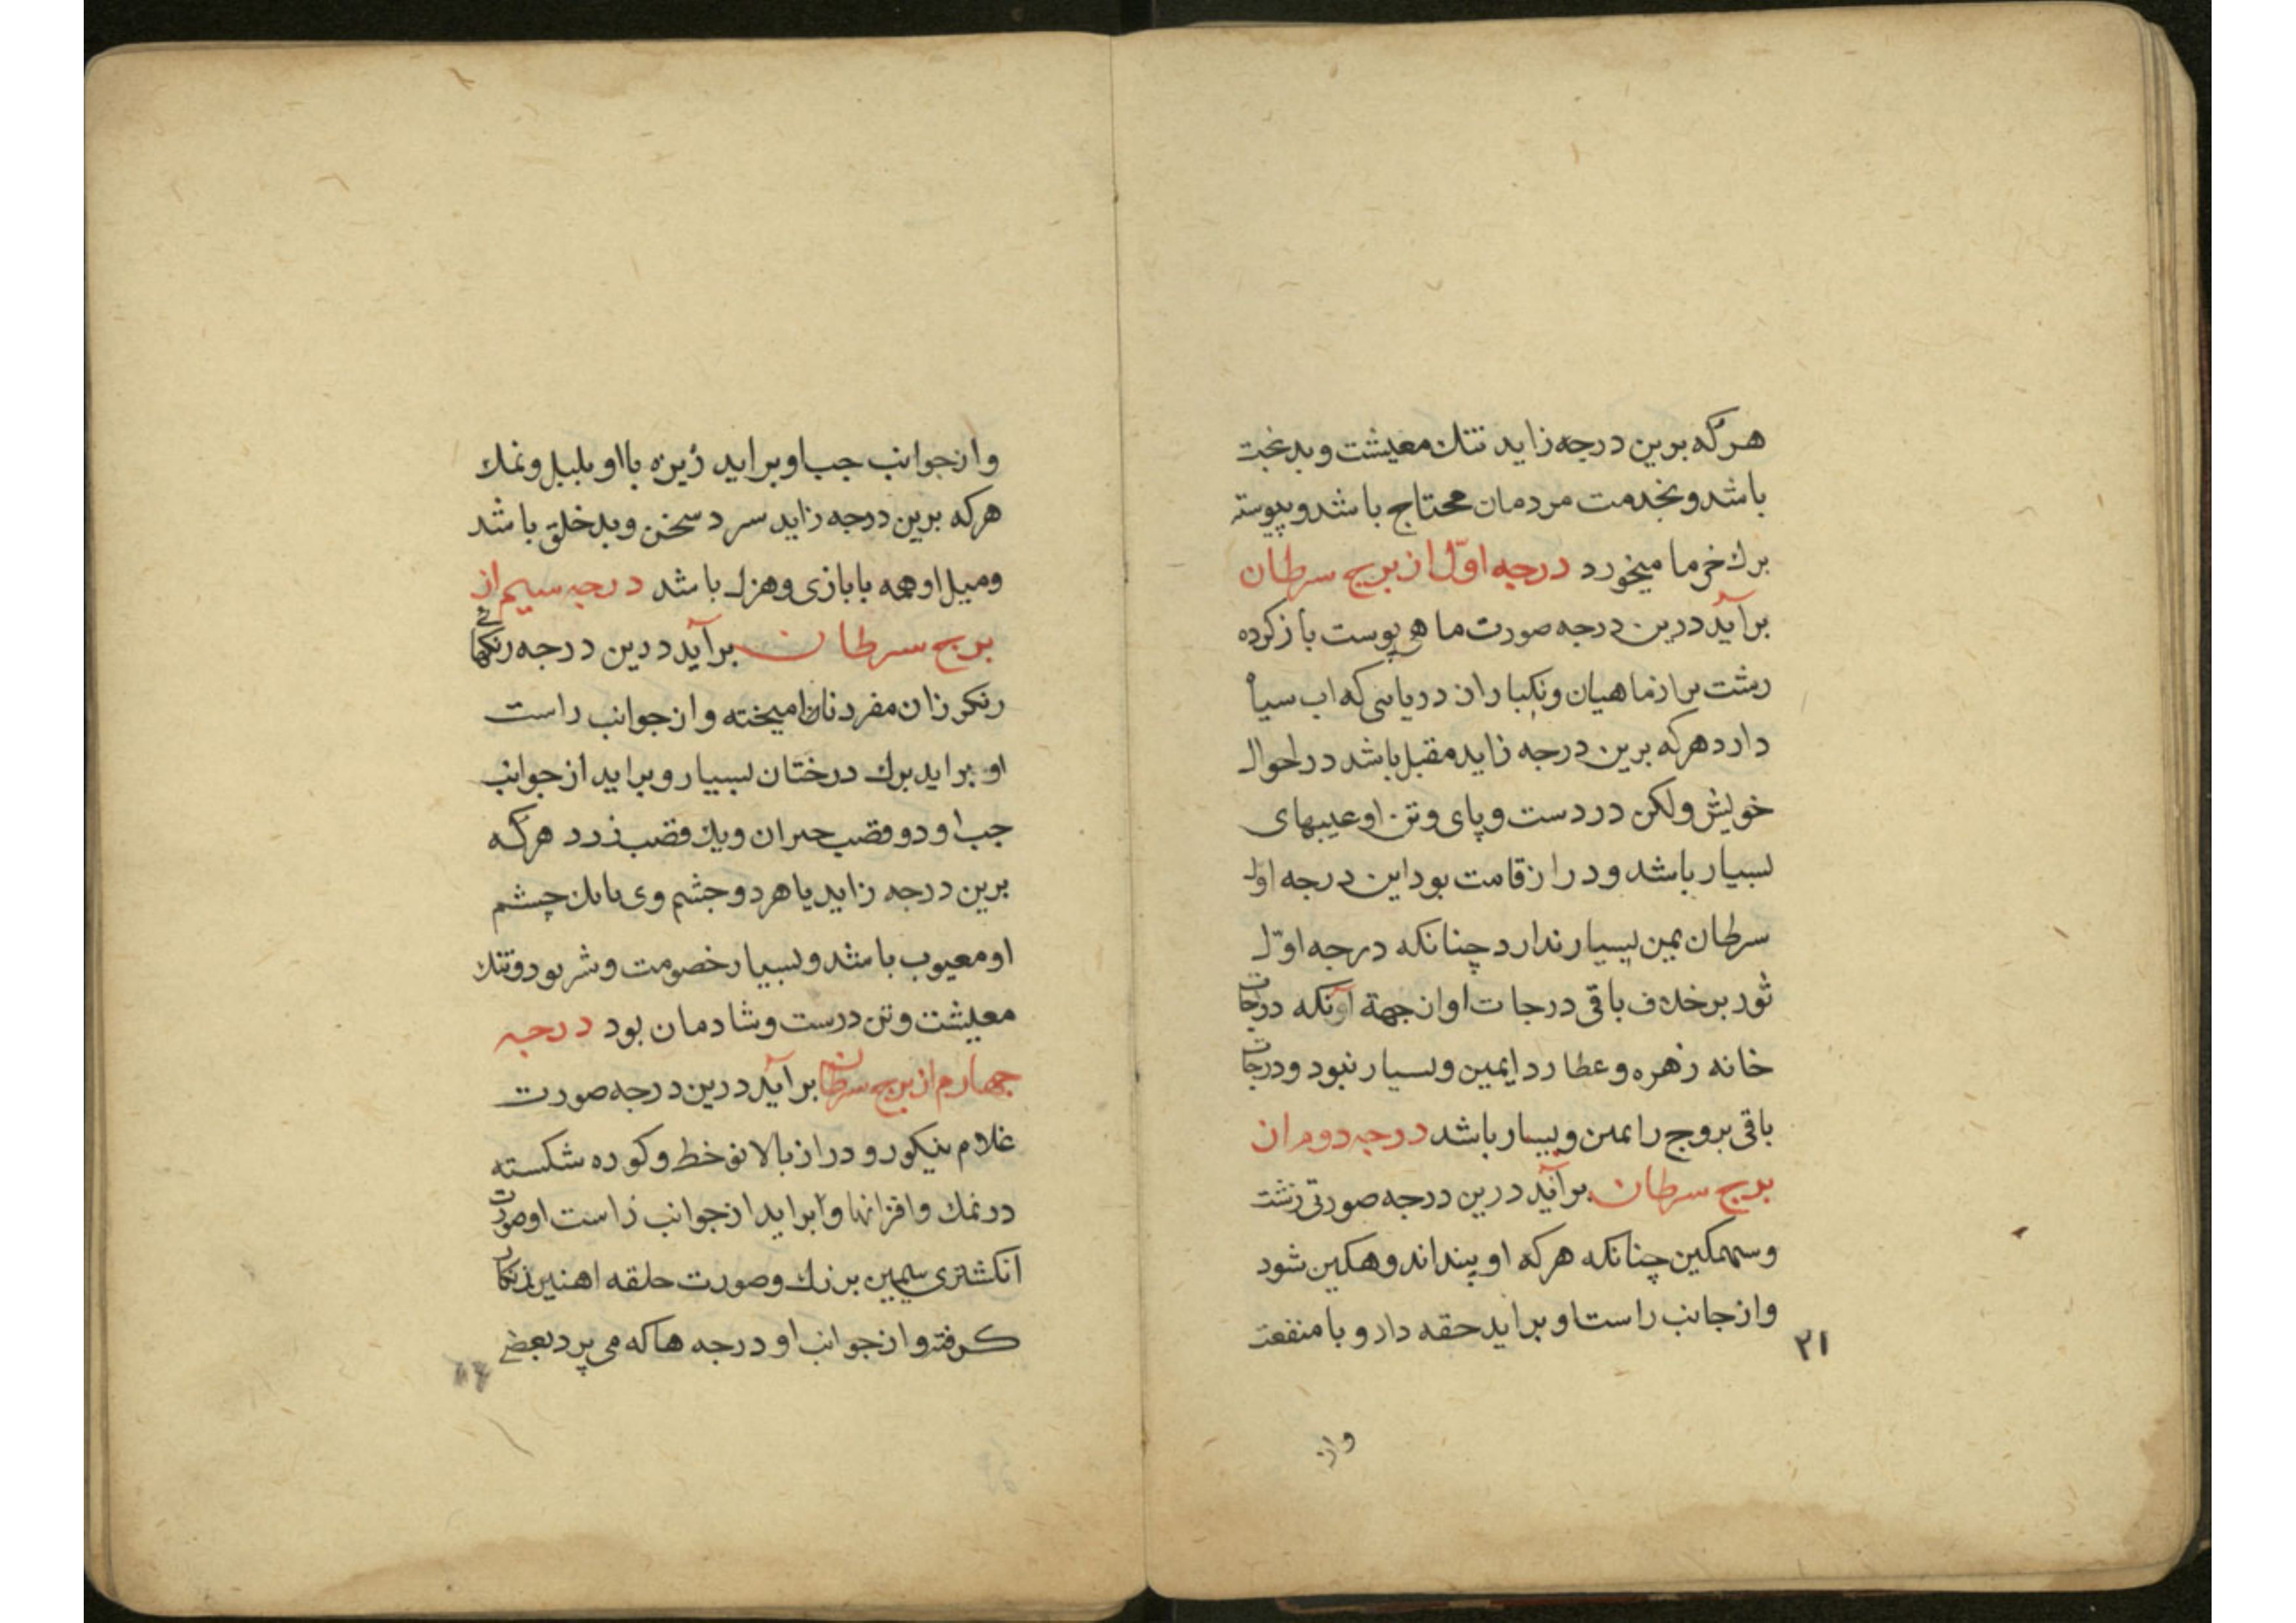 هرکه برین درجه زاید تنك معیشت و بدبخت
باشد و بخدمت مردمان محتاج باشد و پیوسته
برك خرما میخورد درجه اوّل از برج سرطان
برآید درین درجه صورت ماهی پوست باز کرده
رشت براز ماهیان و نکبا را از دریایی که اب سیا
دارد هرکه برین درجه زاید مقبل باشد در احوال
خویش ولکن در دست و پای و تن او عیبهای
بسیار باشد و دراز قامت بود این درجه اول
سرطان یمن بسیار ندارد چنانکه درجه اوّل
ثور برخلاف باقی درجات او از جهة آونکه درجات
خانه زهره و عطارد ایمین و بسیار نبود و درجات
باقی بروج را یمن و بسیار باشد درجه دوم از
برج سرطان برآید درین درجه صورتی زشت
و سهمکین چنانکه هرکه او بیند اندوهکین شود
و از جانب راست او براید حقه دارو با منفعت
۲۱
واز
و از جوانب جب او براید زیره با او بلبل و نمك
هرکه برین درجه زاید سرد سخن و بدخلق باشد
و میل او همه با بازی و هزل باشد درجه سیم از
برج سرطان برآید درین درجه رنکهائی
رنکرزان مفرد نان امیخته و از جوانب راست
او براید برك درختان بسیار و براید از جوانب
جب او دو قصب حیران و یك قصب زرد هرکه
برین درجه زاید یا هر دو جشم وی یا یك چشم
او معیوب باشد و بسیار خصومت و شر بود و تنك
معیشت و تن درست و شادمان بود درجه
جهارم از برج سرطان برآید درین درجه صورت
غلام نیکورو دراز بالا نوخط و کوره شکسته
در نمك و افزانها و ابراید از جوانب راست او صورت
انکشتری سیمین بزرك و صورت حلقه اهنین زنکار
کرفته و از جوانب او درجه ها که می پرد بعضی